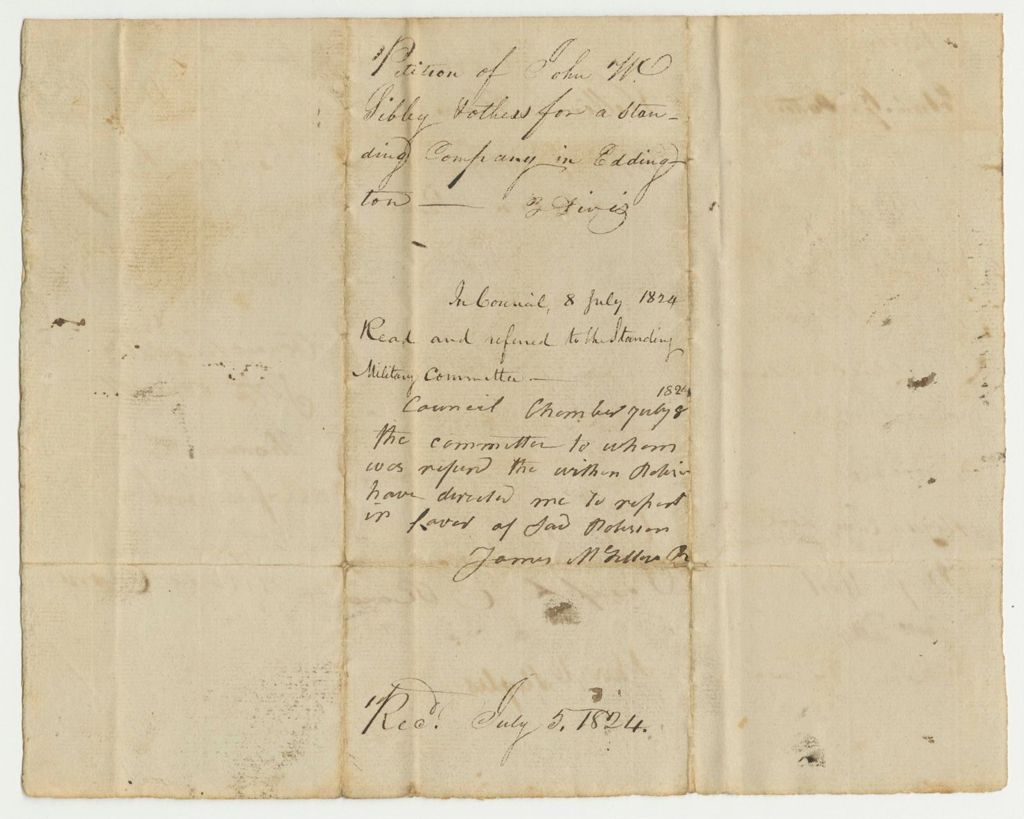 Petition of John W.
Sibley & others for a stan-
ding Company in Edding-
ton — 3 Divis
In Council, 8 July 1824
Read and referred to the Standing
Military Committee —
1824
Council Chamber July 8
the committee to whom
was referd the within
have directed me to report
in favor of Sad
James
Recd. July 5. 1824.